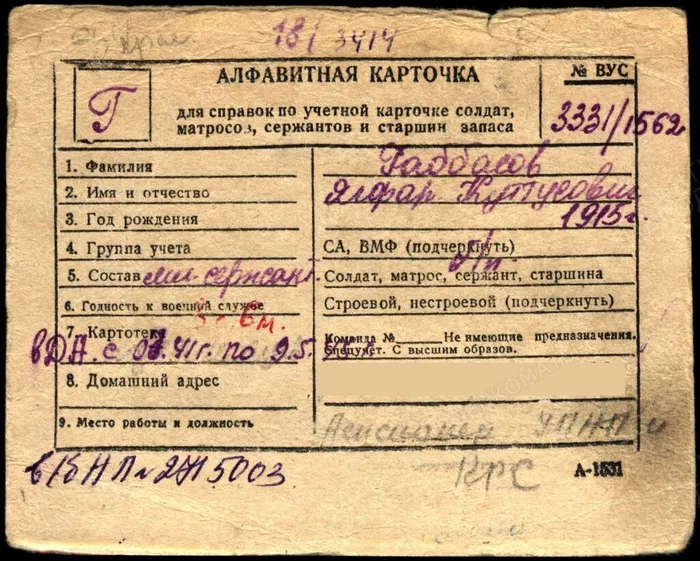 18/3414
АЛФАВИТНАЯ КАРТОЧКА
№ ВУС
Г
для справок по учетной карточке солдат,
матросов, сержантов и старшин запаса
3331/1562
1. Фамилия
Габбасов
2. Имя и отчество
Ялфар Кутусович
3. Год рождения
1915 г.
4. Группа учета
СА, ВМФ (подчеркнуть)
5. Состав мл. сержант
Солдат, матрос, сержант, старшина
6. Годность к военной службе
Строевой, нестроевой (подчеркнуть)
7. Картотека
Команда № Не имеющие предназначения.
Спецучет. С высшим образов.
в ДА с 41 г. по 9.5.
8. Домашний адрес
9. Место работы и должность
Пенсионер
А-1531